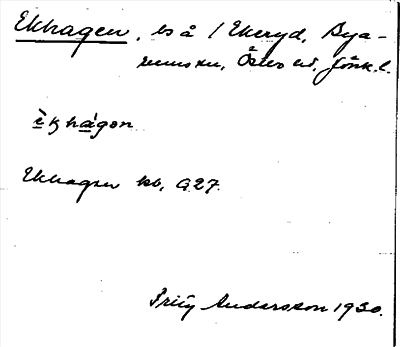 Ekhagen, ls å / Ekeryd, Bya-
rums sn, Östbo hd, Jönk. l.
è̱k há̱gən
Ekhagen kb, G27.
Fritz Andersson 1930.